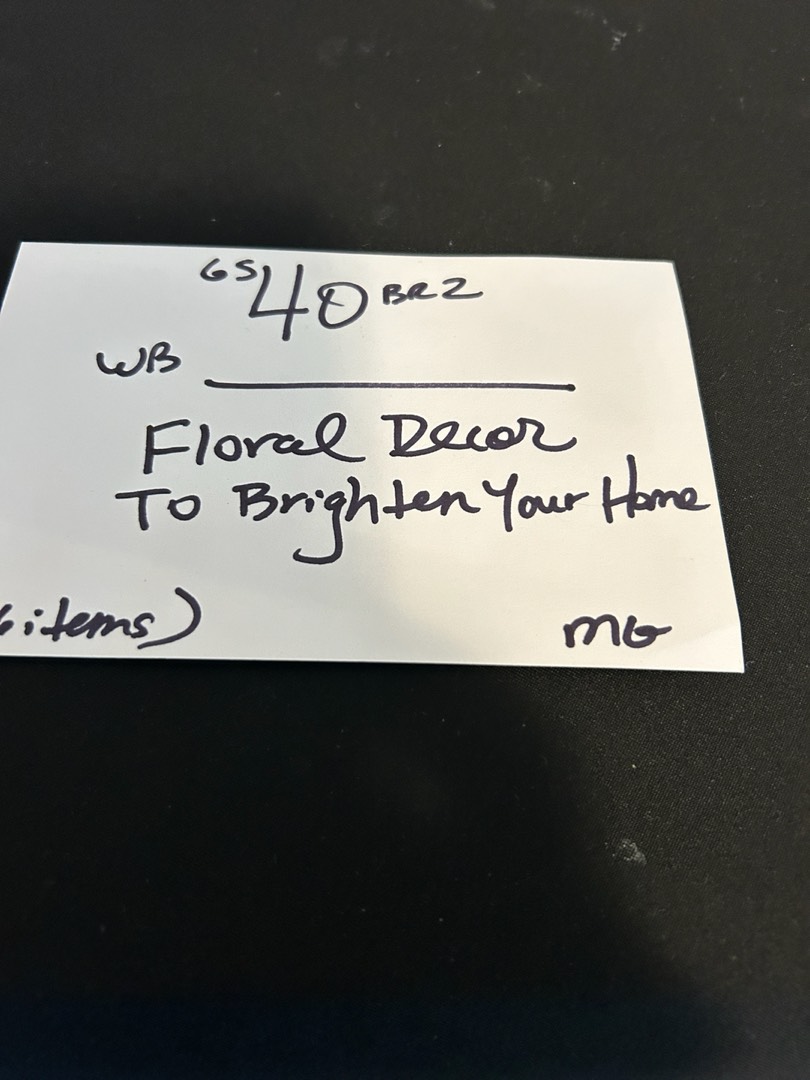 GS 40 BRZ
WB
Floral Decor
To Brighten Your Home
items) MG